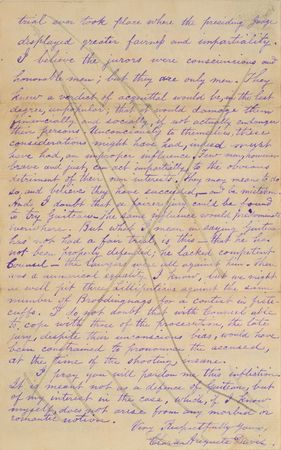 trial ever took place where the presiding Judge
displayed greater fairness and impartiality.
I believe the jurors were conscientious and
honorable men; but they are only men. They
knew a verdict of acquittal would be, in the last
degree, unpopular; that it would damage them
financially and socially, if not actually endanger
their persons. Unconsciously to themselves, these
considerations might have had, indeed must
have had, an improper influence. Few men, however
brave and just, can act impartially, to the obvious
detriment of their own interests; they may mean to do
so, and believe they have succeeded, and be mistaken.
And I doubt that a fairer jury could be found
to try Guiteau. The same influence would predominate
everywhere. But what I mean in saying Guiteau
has not had a fair trial, is this—that he has
not been properly defended; he lacked competent
Counsel—the lawyers were all against him; there
was a numerical equality, I know, but we might
as well put three Lilliputians against the same
number of Brobdingnags for a contest in fisti-
cuffs. I do not doubt that with Counsel able
to cope with those of the prosecution, the late
jury, despite their unconscious bias, would have
been constrained to pronounce the accused,
at the time of the shooting, insane.
I pray you will pardon me this infliction.
It is meant not as a defence of Guiteau, but
of my interest in the case, which, if I know
myself, does not arise from any morbid or
romantic notion.
Very Respectfully Yours,
Davis.